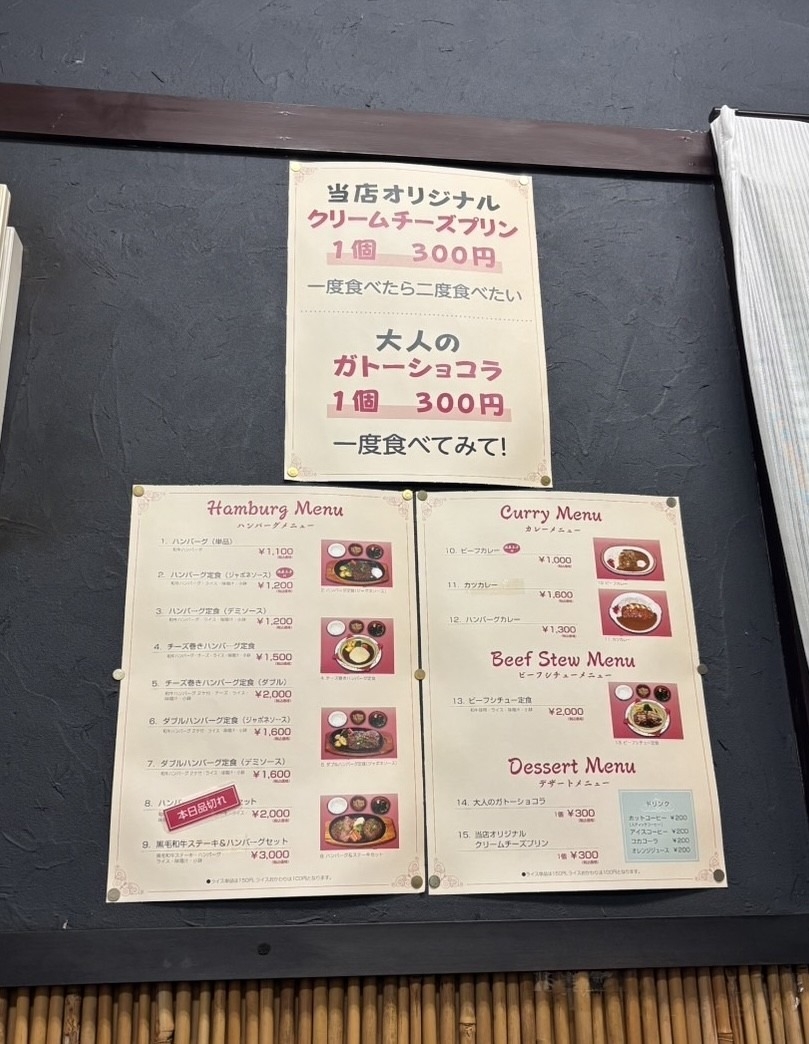 当店オリジナル
クリームチーズプリン
1個 300円
一度食べたら二度食べたい
大人の
ガトーショコラ
1個 300円
一度食べてみて!
Hamburg Menu
ハンバーグメニュー
1. ハンバーグ（単品）
和牛ハンバーグ
¥1,100
2. ハンバーグ定食（ジャポネソース）
¥1,200
3. ハンバーグ定食（デミソース）
¥1,200
4. チーズ巻きハンバーグ定食
¥1,500
5. チーズ巻きハンバーグ定食（ダブル）
¥2,000
6. ダブルハンバーグ定食（ジャポネソース）
¥1,600
7. ダブルハンバーグ定食（デミソース）
¥1,600
8. ハン
セット
本日品切れ
¥2,000
9. 黒毛和牛ステーキ&ハンバーグセット
黒毛和牛ステーキ・ハンバーグ
ライス・味噌汁・小鉢
¥3,000
●ライス単品は150円、ライスおかわりは100円となります。
Curry Menu
カレーメニュー
10. ビーフカレー
¥1,000
11. カツカレー
¥1,600
12. ハンバーグカレー
¥1,300
Beef Stew Menu
ビーフシチューメニュー
13. ビーフシチュー定食
¥2,000
Dessert Menu
デザートメニュー
14. 大人のガトーショコラ
1個 ¥300
15. 当店オリジナル
クリームチーズプリン
1個 ¥300
ドリンク
ホットコーヒー ¥200
アイスコーヒー ¥200
コカコーラ ¥200
オレンジジュース ¥200
●ライス単品は150円、ライスおかわりは100円となります。